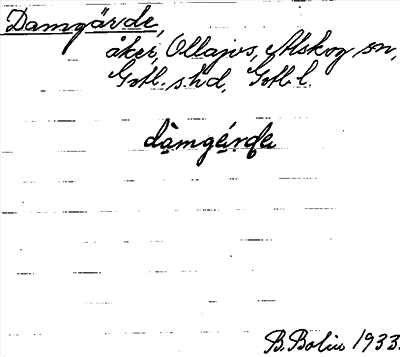 Damgärde,
åker, Ollajvs, Alskog sn,
Gotl. s. hd, Gotl. l.
dàmgérde
B. Bolin 1933.